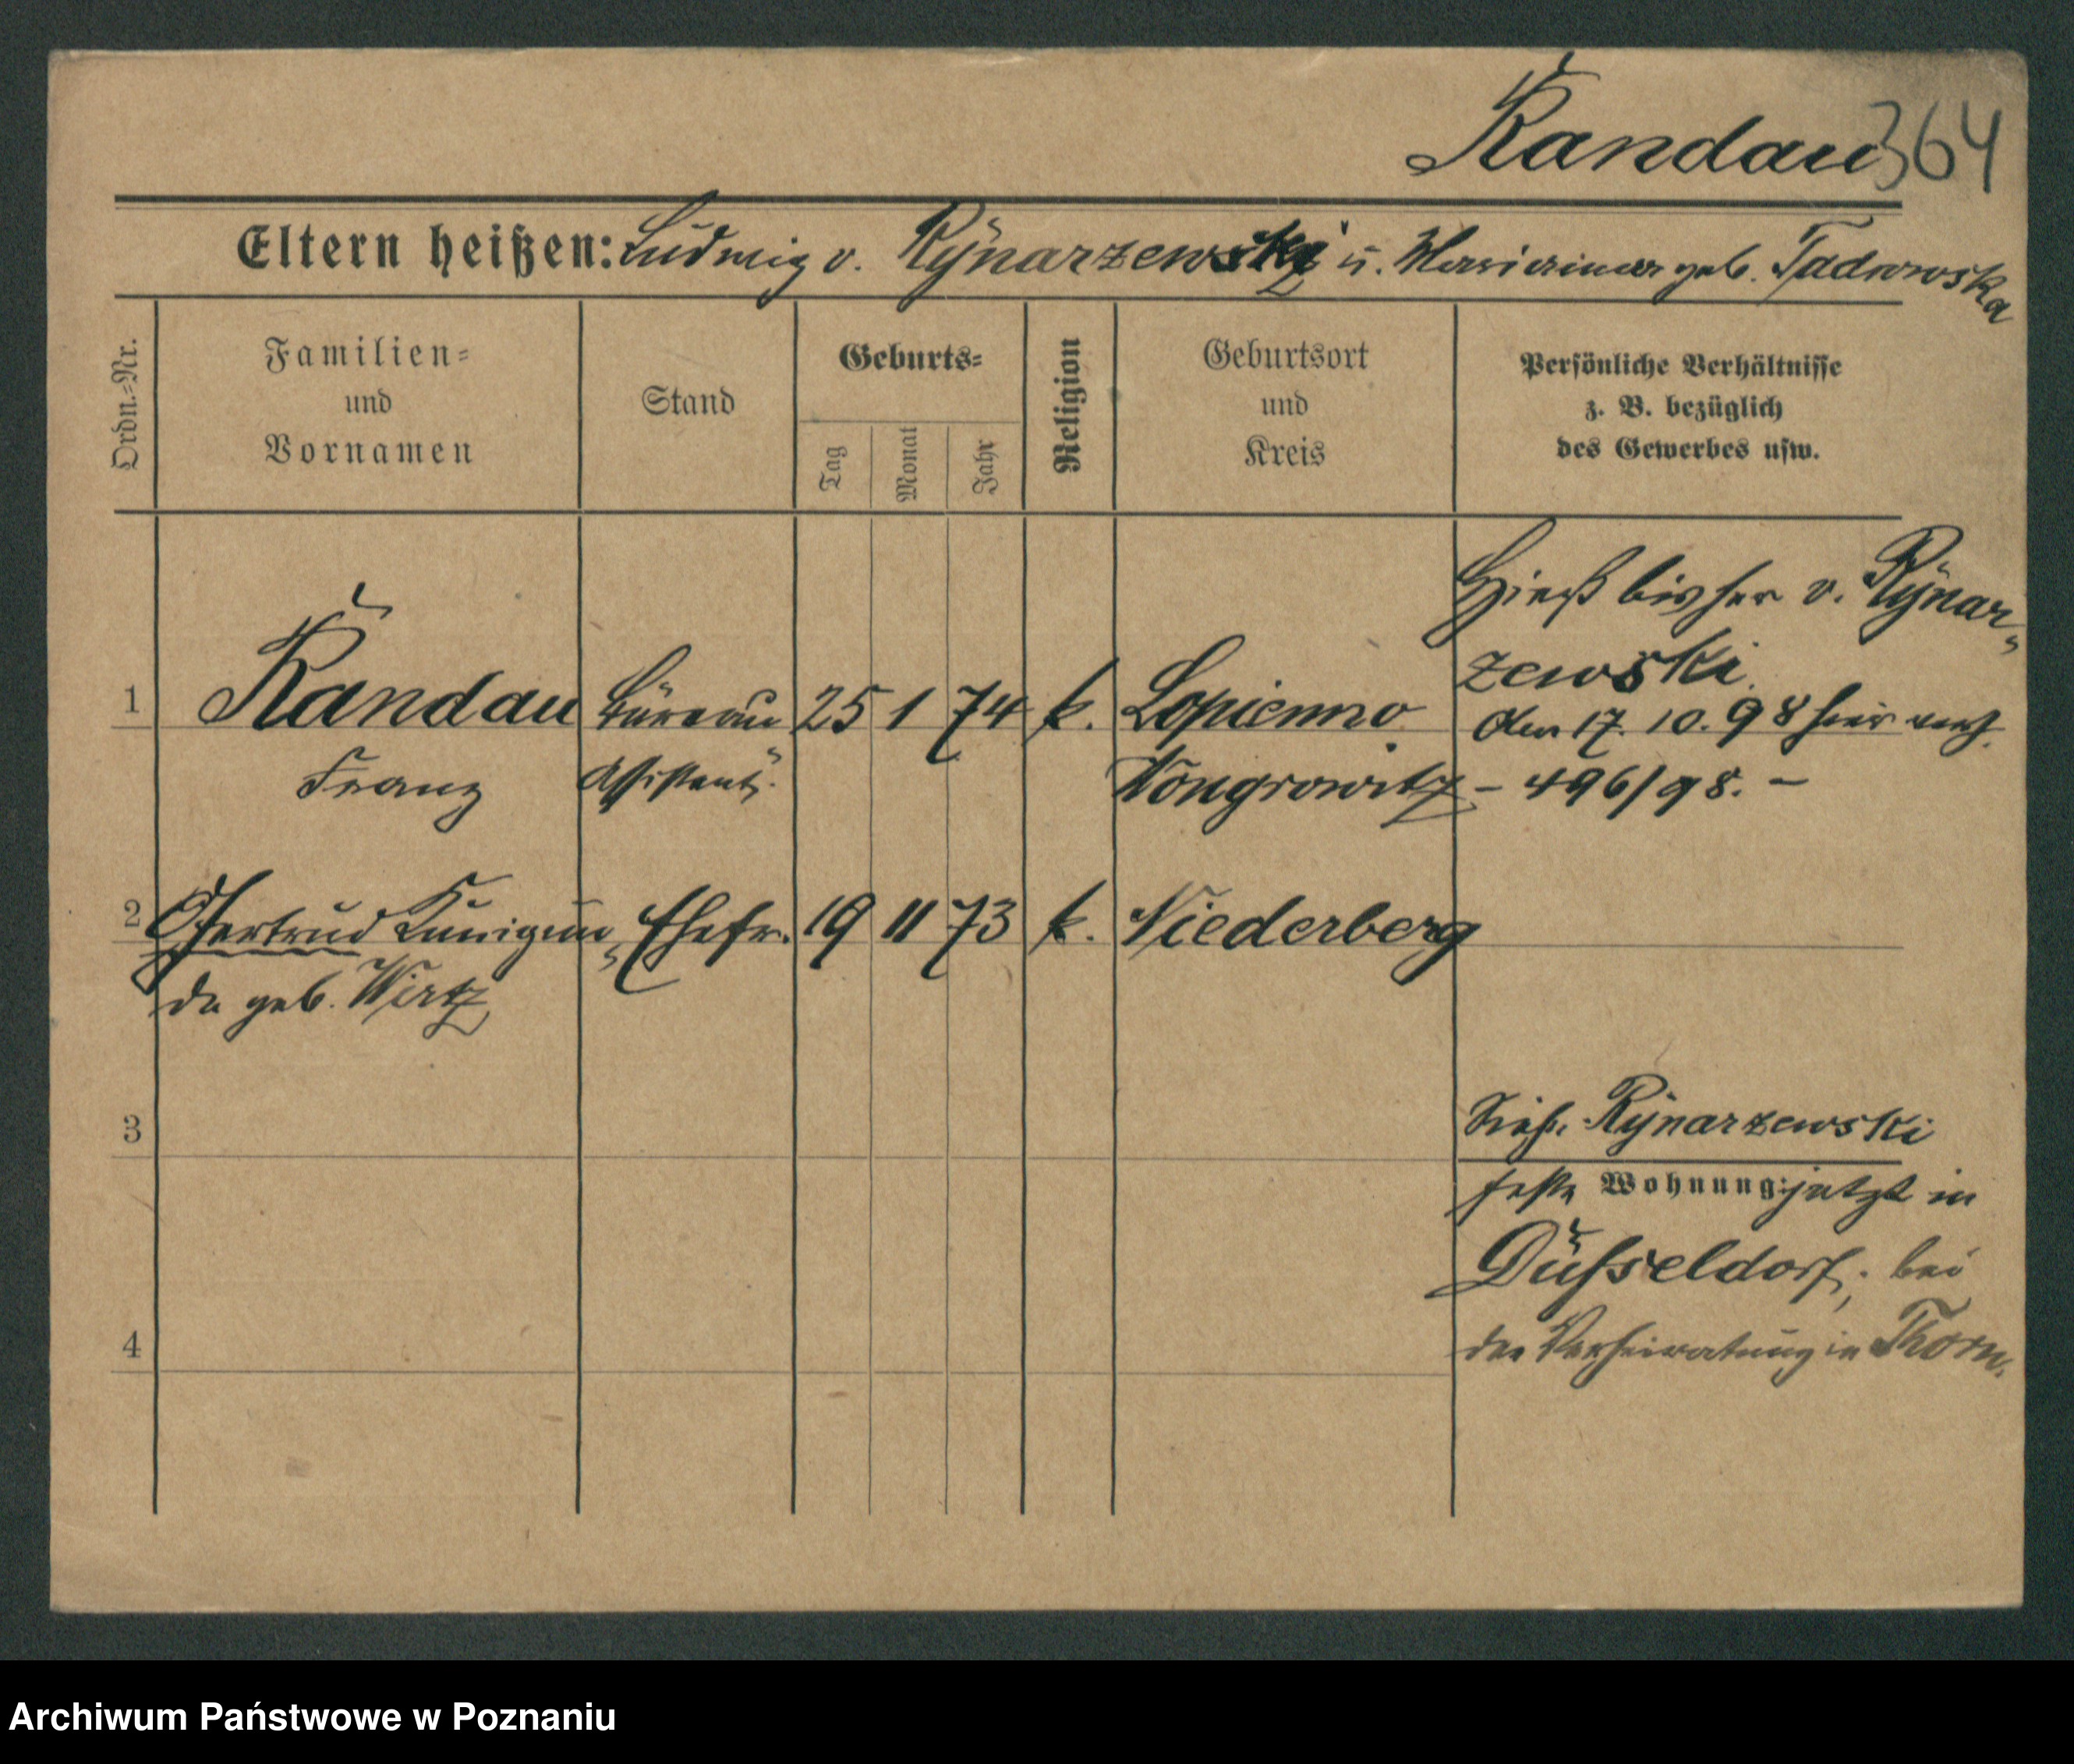 Randau 364
Eltern heißen: Ludwig v. Rynarzewski u. Marianna geb. Tadrowska
Ordn.=Nr.
Familien=
und
Vornamen
Stand
Geburts=
Tag
Monat
Jahr
Religion
Geburtsort
und
Kreis
Persönliche Verhältnisse
z. B. bezüglich
des Gewerbes usw.
Hieß bisher v. Rynar„
zewski.
1 Randau Büreau 25 1 74 k. Lopienno den 17. 10. 98 hier verh.
Franz Assistent. Wongrowitz – 496/98. –
2 Gertrud Kunigun„ Ehefr. 19 11 73 k. Niederberg
de geb. Wirtz
3 Rynarzewski
feste Wohnung: jetzt in
Düsseldorf, bei
4 der Verheiratung in Thorn.
Archiwum Państwowe w Poznaniu